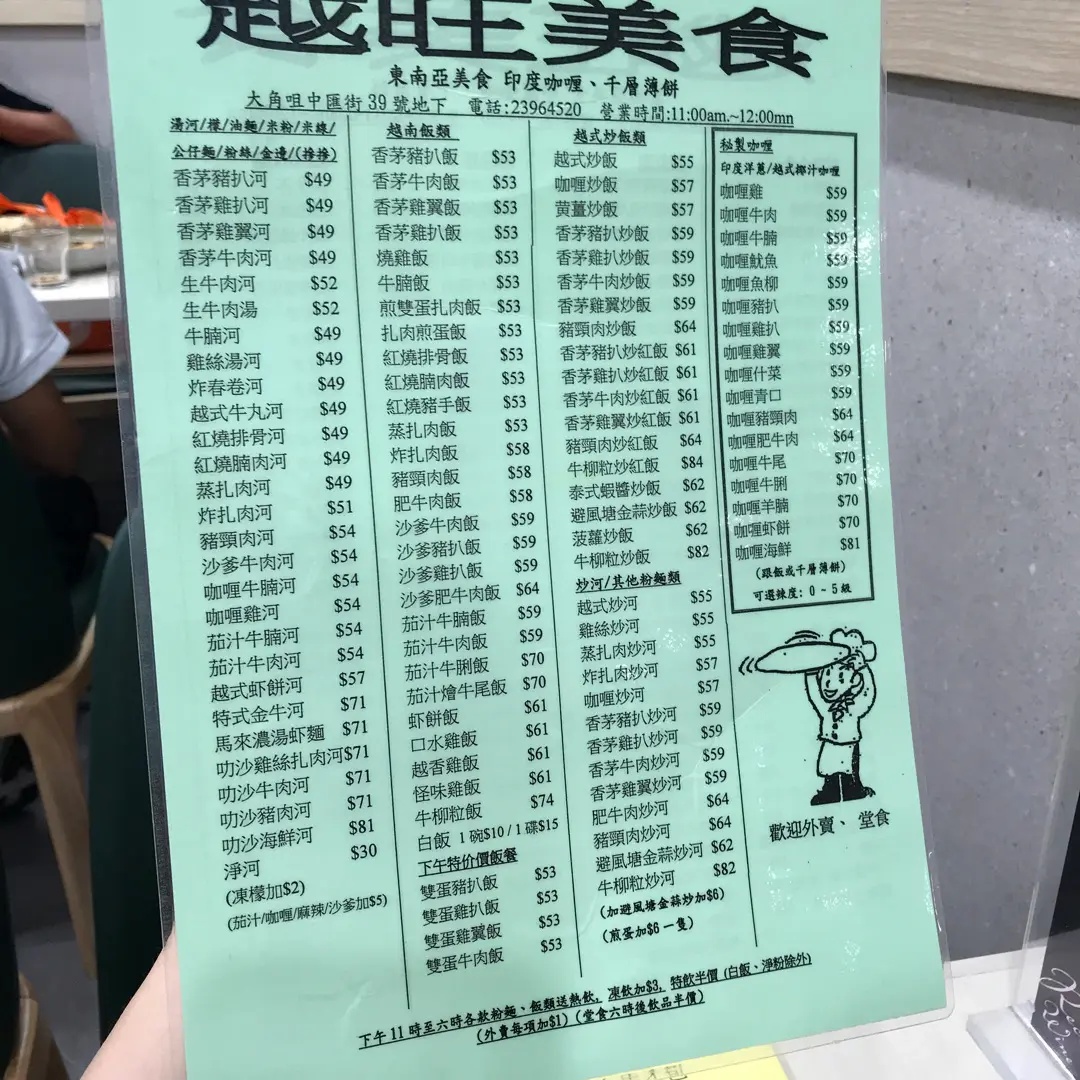 越旺美食
東南亞美食 印度咖喱、千層薄餅
大角咀中匯街 39 號地下 電話:23964520 營業時間:11:00am.~12:00mn
湯河/檬/油麵/米粉/米線/
公仔麵/粉絲/金邊/(撈撈)
香茅豬扒河 $49
香茅雞扒河 $49
香茅雞翼河 $49
香茅牛肉河 $49
生牛肉河 $52
生牛肉湯 $52
牛腩河 $49
雞絲湯河 $49
炸春卷河 $49
越式牛丸河 $49
紅燒排骨河 $49
紅燒腩肉河 $49
蒸扎肉河 $49
炸扎肉河 $51
豬頸肉河 $54
沙爹牛肉河 $54
咖喱牛腩河 $54
咖喱雞河 $54
茄汁牛腩河 $54
茄汁牛肉河 $54
越式虾餅河 $57
特式金牛河 $71
馬來濃湯虾麵 $71
叻沙雞絲扎肉河$71
叻沙牛肉河 $71
叻沙豬肉河 $71
叻沙海鮮河 $81
淨河 $30
(凍檬加$2)
(茄汁/咖喱/麻辣/沙爹加$5)
越南飯類
香茅豬扒飯 $53
香茅牛肉飯 $53
香茅雞翼飯 $53
香茅雞扒飯 $53
燒雞飯 $53
牛腩飯 $53
煎雙蛋扎肉飯 $53
扎肉煎蛋飯 $53
紅燒排骨飯 $53
紅燒腩肉飯 $53
紅燒豬手飯 $53
蒸扎肉飯 $53
炸扎肉飯 $58
豬頸肉飯 $58
肥牛肉飯 $58
沙爹牛肉飯 $59
沙爹豬扒飯 $59
沙爹雞扒飯 $59
沙爹肥牛肉飯 $64
茄汁牛腩飯 $59
茄汁牛肉飯 $59
茄汁牛脷飯 $70
茄汁燴牛尾飯 $70
虾餅飯 $61
口水雞飯 $61
越香雞飯 $61
怪味雞飯 $61
牛柳粒飯 $74
白飯 1 碗$10 / 1 碟$15
下午特价價飯餐
雙蛋豬扒飯 $53
雙蛋雞扒飯 $53
雙蛋雞翼飯 $53
雙蛋牛肉飯 $53
越式炒飯類
越式炒飯 $55
咖喱炒飯 $57
黄薑炒飯 $57
香茅豬扒炒飯 $59
香茅雞扒炒飯 $59
香茅牛肉炒飯 $59
香茅雞翼炒飯 $59
豬頸肉炒飯 $64
香茅豬扒炒紅飯 $61
香茅雞扒炒紅飯 $61
香茅牛肉炒紅飯 $61
香茅雞翼炒紅飯 $61
豬頸肉炒紅飯 $64
牛柳粒炒紅飯 $84
泰式蝦醬炒飯 $62
避風塘金蒜炒飯 $62
菠蘿炒飯 $62
牛柳粒炒飯 $82
炒河/其他粉麵類
越式炒河 $55
雞絲炒河 $55
蒸扎肉炒河 $55
炸扎肉炒河 $57
咖喱炒河 $57
香茅豬扒炒河 $59
香茅雞扒炒河 $59
香茅牛肉炒河 $59
香茅雞翼炒河 $59
肥牛肉炒河 $64
豬頸肉炒河 $64
避風塘金蒜炒河 $62
牛柳粒炒河 $82
(加避風塘金蒜炒加$6)
(煎蛋加$6 一隻)
秘製咖喱
印度洋蔥/越式椰汁咖喱
咖喱雞 $59
咖喱牛肉 $59
咖喱牛腩 $59
咖喱魷魚 $59
咖喱魚柳 $59
咖喱豬扒 $59
咖喱雞扒 $59
咖喱雞翼 $59
咖喱什菜 $59
咖喱青口 $59
咖喱豬頸肉 $64
咖喱肥牛肉 $64
咖喱牛尾 $70
咖喱牛脷 $70
咖喱羊腩 $70
咖喱虾餅 $70
咖喱海鮮 $81
(跟飯或千層薄餅)
可選辣度: 0 ~ 5 級
歡迎外賣、 堂食
下午 11 時至六時各款粉麵、飯類送熱飲, 凍飲加$3, 特飲半價 (白飯、淨粉除外)
(外賣每項加$1) (堂食六時後飲品半價)